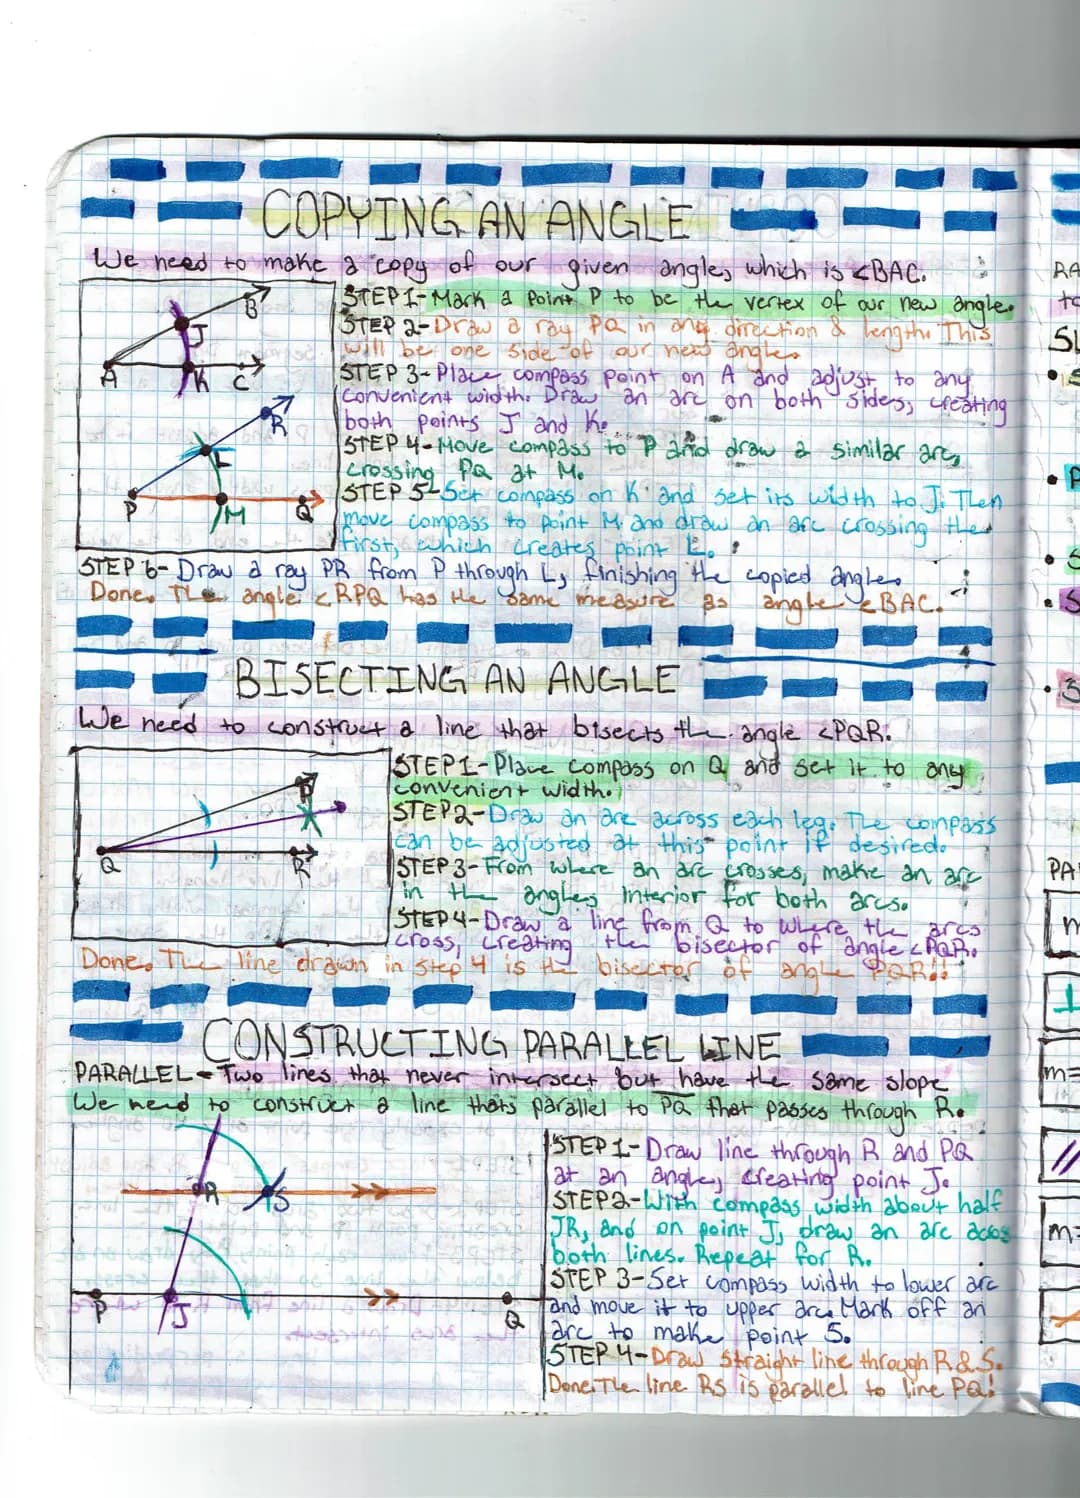 COPYING AN ANGLE
We need to make a copy of our given angle, which is <BAC.
STEP 1- Mark a point P to be the vertex of our new angle.
STEP 2- Draw a ray PQ in any direction & length. This
will be one side of our new angle.
STEP 3- Place compass point on A and adjust to any
convenient width. Draw an arc on both sides, creating
both points J and K.
STEP 4- Move compass to P and draw a similar arc,
crossing PQ at M.
STEP 5- Set compass on K and set its width to J. Then
move compass to point M and draw an arc crossing the
first, which creates point L.
STEP 6- Draw a ray PR from P through L, finishing the copied angle.
Done. The angle <RPQ has the same measure as angle <BAC.
B
J
A
K
C
R
L
P
M
Q
BISECTING AN ANGLE
We need to construct a line that bisects the angle <PQR.
STEP 1- Place compass on Q and set it to any
convenient width.
STEP 2- Draw an arc across each leg. The compass
can be adjusted at this point if desired.
STEP 3- From where an arc crosses, make an arc
in the angles interior for both arcs.
STEP 4- Draw a line from Q to where the arcs
cross, creating the bisector of angle <PQR.
Done. The line drawn in step 4 is the bisector of angle PQR!!
P
Q
R
CONSTRUCTING PARALLEL LINE
PARALLEL- Two lines that never intersect but have the same slope
We need to construct a line thats parallel to PQ that passes through R.
STEP 1- Draw line through R and PQ
at an angle, creating point J.
STEP 2- With compass width about half
JR, and on point J, draw an arc acros
both lines. Repeat for R.
STEP 3- Set compass width to lower arc
and move it to upper arc. Mark off an
arc to make point S.
STEP 4- Draw straight line through R & S.
Done. The line RS is parallel to line PQ!
R
S
P
J
Q
RA
to
SL
PA
m=
m=